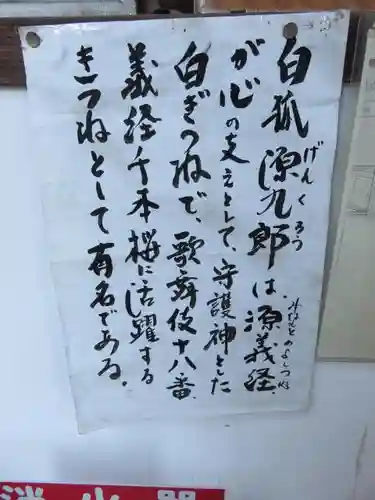 白狐源九郎は、源義経、
げんくろう
みなもとのよしつね
が心の支えとして、守護神とした
白ぎつねで、歌舞伎十八番、
義経千本桜に活躍する
きつねとして有名である。
消火器